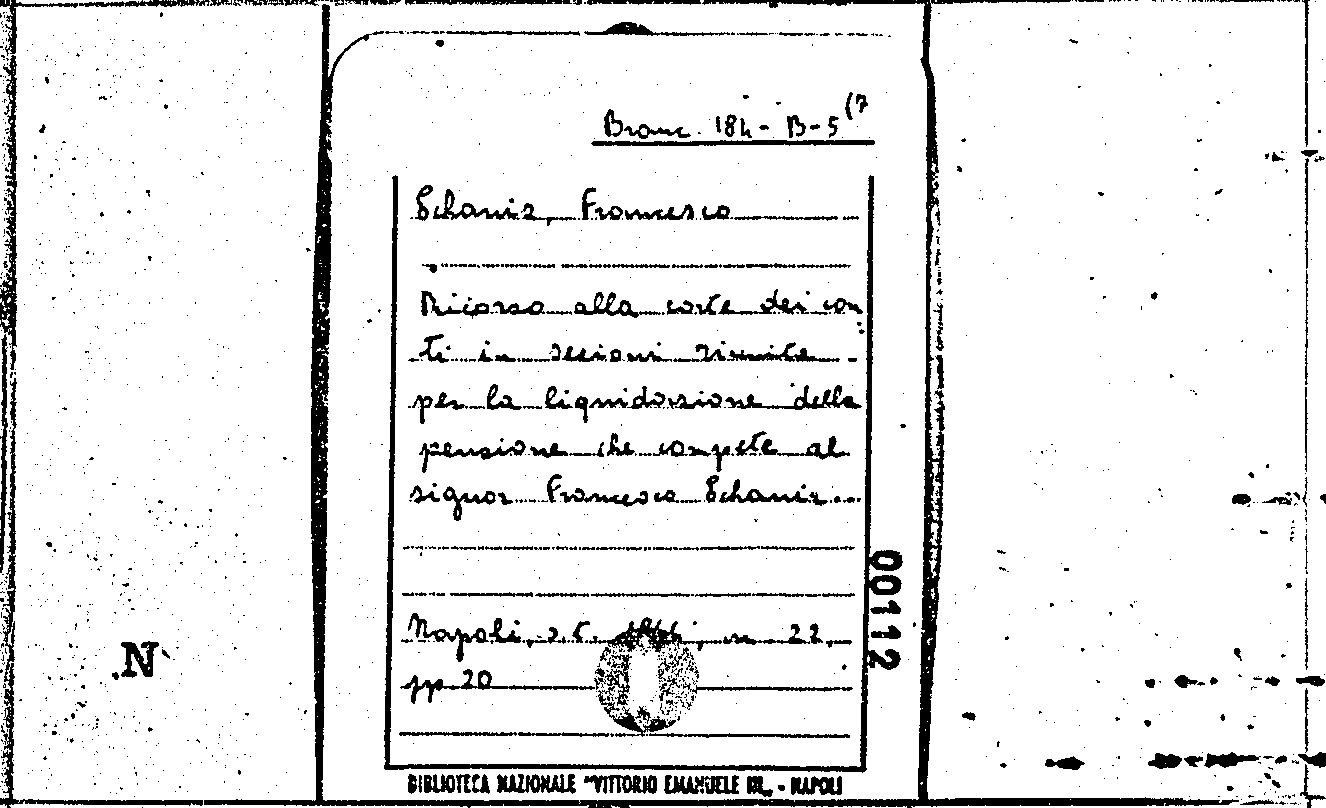 Branc. 184- B-5 (7
Schaniz, Francesco
Ricorso alla corte dei con
ti in sezioni riunite -
per la liquidazione della
pensione che compete al
signor Francesco Schaniz...
Napoli, s.t. in 22,
pp. 20
00112
.N
BIBLIOTECA NAZIONALE "VITTORIO EMANUELE III„ - NAPOLI